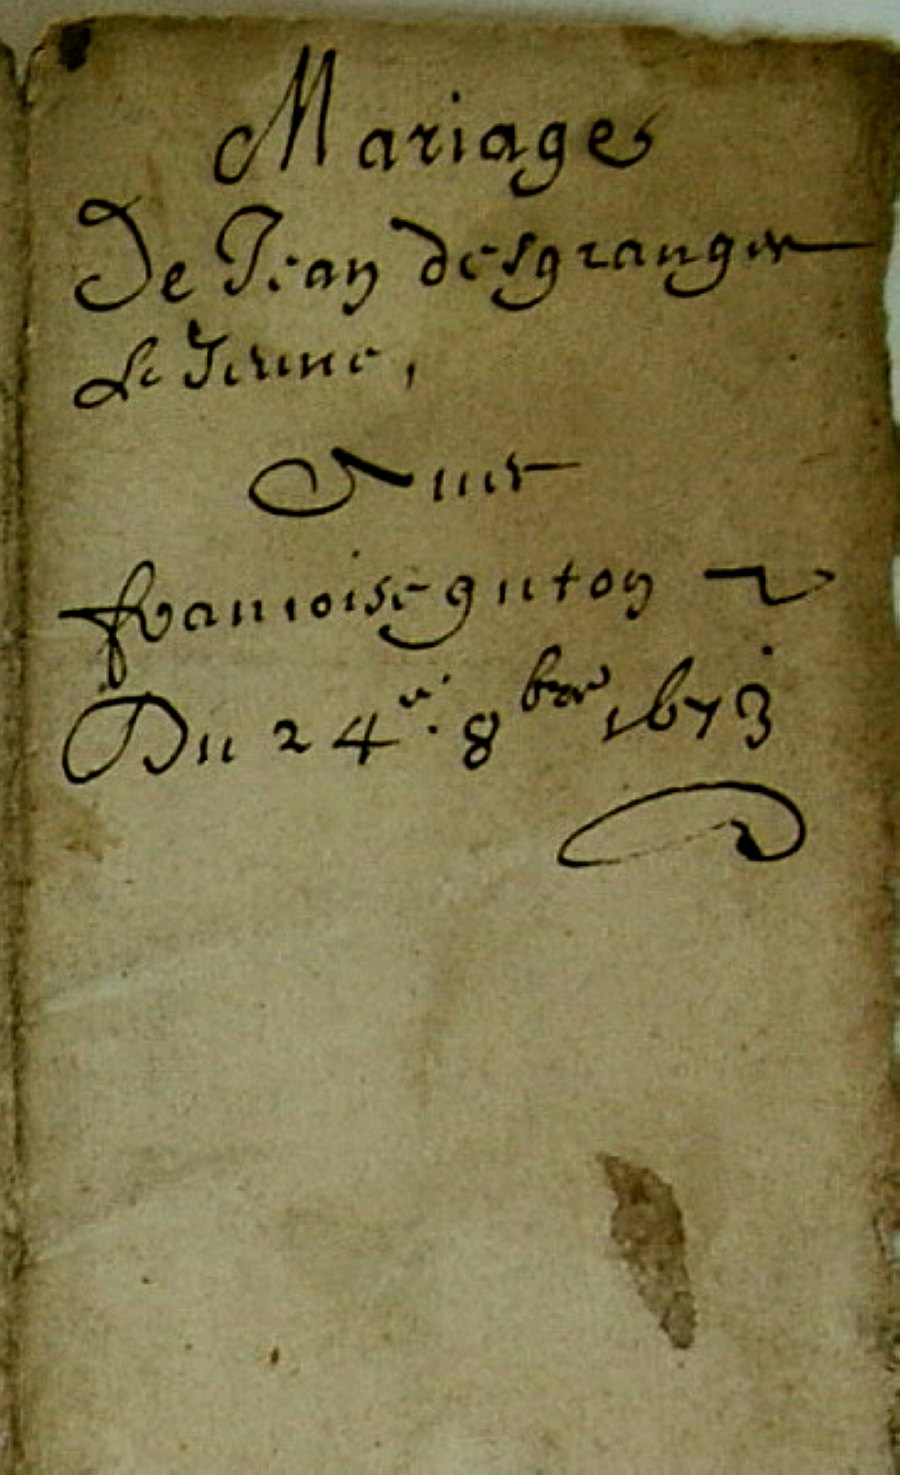 Mariage
De Jean desgranges
Le Jeune,
Avec
francoise guton
Du 24e. 8bre 1673